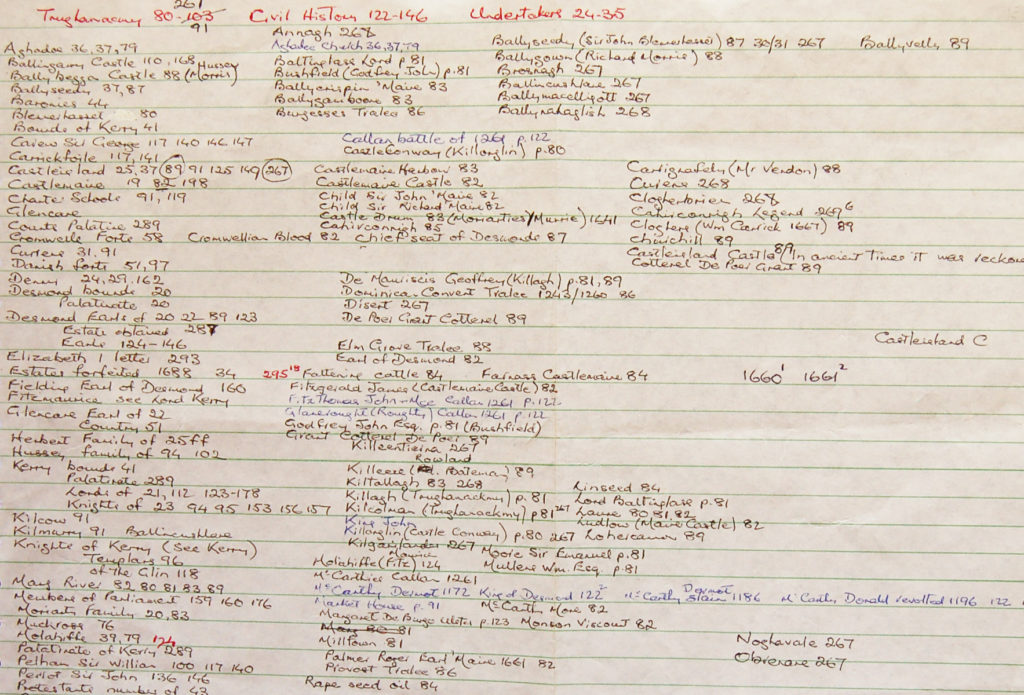 261
Trughanacmy 80-103 Civil History 122-146 Undertakers 24-35
91
Annagh 268
Aghadoe 36, 37, 79 Aghadoe Church 36, 37, 79 Ballyseedy (Sir John Blenerhasset) 87 30/31 267 Ballyvelly 89
Ballingarry Castle 110, 168 Hussey Baltinglass Lord p.81 Ballygown (Richard Morris) 88
Ballybegga Castle 88 (Morris) Bushfield (Godfrey John) p.81 Brosnagh 267
Ballyseedy 37, 87 Ballycrispin 'Maine 83 Ballincushlane 267
Baronies 44 Ballygamboone 83 Ballymacelligott 267
Blenerhasset 80 Burgesses Tralee 86 Ballynahaglish 268
Bounds of Kerry 41
Carew Sir George 117 140 146 147 Callan battle of 1261 p.122
Carrickfoile 117, 141 Castle Conway (Killorglin) p.80
Castleisland 25, 37 89 91 125 149 267 Castlemaine Harbour 83 Cartignafehy (Mr Verdon) 88
Castlemaine 19 82 198 Castlemaine Castle 82 Curiens 268
Charter Schools 91, 119 Child Sir John 'Maine 82 Clogherbrien 268
Glencare Child Sir Richard 'Maine 82 Cahirconrigh Legend 269 6
Counts Palatine 289 Castle Drum 83 (Moriarties/Murrie) 1641 Cloghers (Wm Carrick 1667) 89
Cahirconrigh 85
Cromwells Forts 58 Cromwellian Blood 82 Chief seat of Desmonds 87 Churchill 89
Curlens 31. 91 Castleisland Castle 89 (In ancient times it was reckone
Danish forts 51, 97 Cotterel De Poer Grant 89
Denny 24, 29, 162 De Mauriscis Geoffrey (Killagh) p.81, 89
Desmond bounds 20 Dominican Convent Tralee 1243/1260 86
Palatinate 20 Disert 267
Desmond Earls of 20 22 89 123 De Poer Grant Cotterel 89
Estate obtained 287
Earls 124-146 Elm Grove Tralee 88 Castleisland C
Elizabeth 1 letter 293 Earl of Desmond 82
Estates forfeited 1688 34 295 18 Fattening cattle 84 Farnass Castlemaine 84 1660 1 1661 2
Fielding Earl of Desmond 160 Fitzgerald James (Castlemaine Castle) 82
Fitzmaurice see Lord Kerry FitzThomas John + Mce Callan 1261 p.122
Glencare Earl of 22 Glanerought (Roughty) Callan 1261 p.122
Country 51 Godfrey John Esq. p.81 (Bushfield)
Grant Cotterel De Poer 89
Herbert Family of 25ff Killeentierna 267
Hussey family of 94 102 Rowland
Kerry bounds 41 Killeene ( Bateman) 89
Palatinate 289 Kiltallagh 83 268 Linseed 84
Lords of 21, 112 123-178 Killagh (Trughanackmy) p.81 Lord Baltinglass p.81
Knights of 23 94 95 153 156 157 Kilcolman (Trughanackmy) p81 267 Laune 80 81 82
Kilcow 91 King John Ludlow (Maine Castle) 82
Kilmurry 91 Ballincushlane Killorglin (Castle Conway) p.80 267 Lohercannon 89
Knights of Kerry (See Kerry) 267
Templars 96 Maurice Moore Sir Emanuel p.81
of the Glin 118 Molahiffe (Fitz) 124 Mullens Wm. Esq. p.81
McCarthies Callan 1261
Mang River 82 80 81 83 89 McCarthy Dermot 1172 King of Desmond 122 2 McCarthy Dermot slain 1186 McCarthy Donald revolted 1196 122
Members of Parliament 159 160 176 Market House p. 91 McCarthy More 82
Moriarty Family 20, 83 Margaret De Burgo Ulster p.123 Monson Viscount 82
Muckross 76 Mang 80 81
Molahiffe 39, 79 124 Milltown 81 Noghavale 267
Palatinate of Kerry 289 Palmer Roger Earl 'Maine 1661 82 Obrerane 267
Pelham Sir William 100 117 140 Provost Tralee 86
Perrot Sir John 136 146 Rape seed oil 84
Protestants number of 43